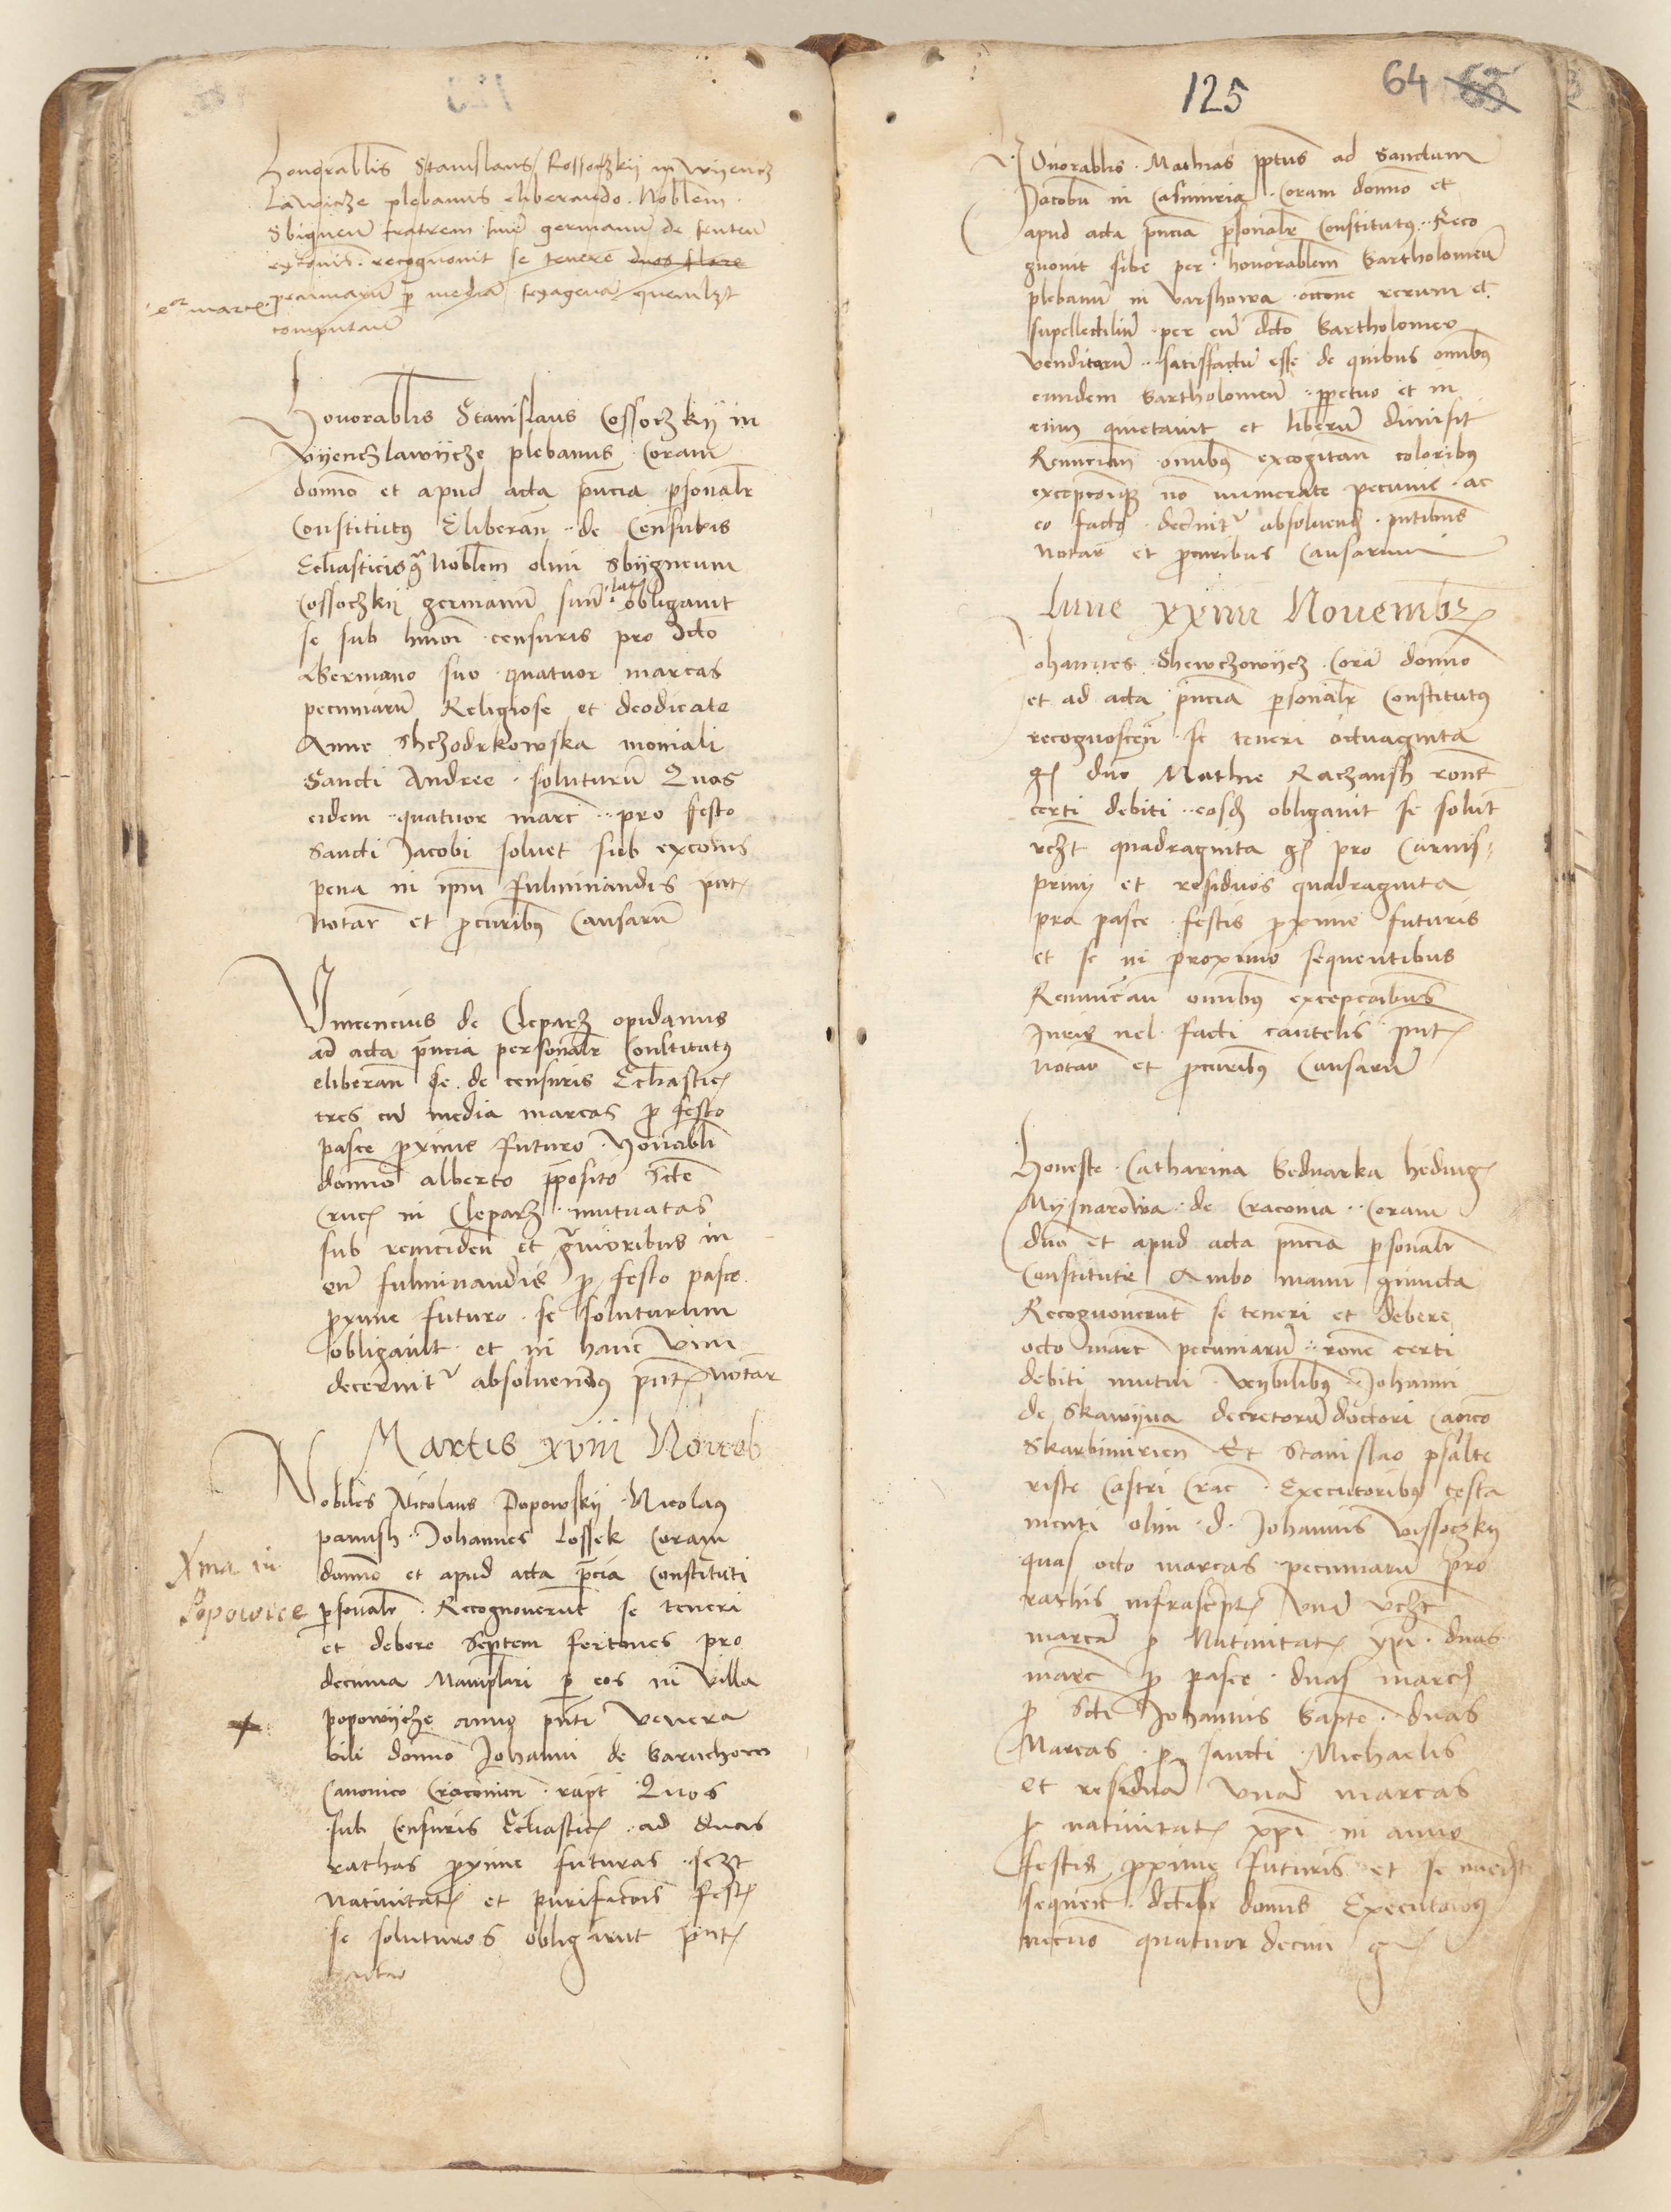 Honorablis Stanislaus Kossoczkij in Wijencz
lawicze plebanus eliberando Noblem
Sbigneum fratrem suum germanum de
excomis recognovit se tenere duos
pecuniarum p media sexagena quemlzt
computando
Honorablis Stanislaus Cossoczkij in
Vijenczlawijcze plebanus Coram
domino et apud acta pncia psonalr
Constitutus Eliberan de Censuris
Eclasticis Noblem olim Sbijgneum
Cossoczkij germanum suum obligavit
se sub hmoi censuris pro dcto
Germano suo quatuor marcas
pecuniarum Religiose et deodicate
Anne Shczodrkowska moniali
Sancti Andree soluturum Quas
eidem quatuor marc pro festo
Sancti Jacobi solvet sub excoms
pena in ipm fulminandis pnt
Notar et pcuribus Causarum
Vincencius de Cleparz opidanus
ad acta pncia personalr Constitutus
eliberan se de censuris Eclastic
tres cum media marcas p festo
pasce pxime futuro Honorabli
domino alberto pposito Scte
Cruc in Cleparz mutuatas
sub reinciden et gravioribus in
eum fulminandis p festo pasce
pxime futuro se soluturum
obligavit et in hanc vim
decernitr absolvendus pnt Notar
Martis xviii Noveb
Nobiles Nicolaus Popowskij Nicolaus
panush Johannes Lossek Coram
Xma in
domino et apud acta pncia Constituti
Popowice
psonalr Recognoverut se teneri
et debere Septem fertones pro
decima Manipulari p eos in villa
popowijcze anno pnti Venera
bili domino Johanni de Baruchow
Canonico Cracovien Quos
sub Censuris Eclastic ad duas
rathas pxime futuras sczt
Nativitatis et purificacois fest
se soluturos obligarut pnt
notar
125
64 63
Honorablis Mathias pptus ad Sanctum
Jacobum in Casimiria Coram domino et
apud acta pncia psonalr Constitutus Reco
gnovit sibi per honorablem Bartholomeum
plebanum in Varshowa occone rerum et
supellectilium per eum dcto Bartholomeo
venditarum satisfactum esse de quibus omnibus
eundem Bartholomeum ppetuo et in
evum quietavit et liberum dimisit
Renuncian omnibus excogitan coloribus
excepcoique non numerate pecunie ac
eo facto decernitr absolvend pntibus
Notar et pcuribus Causarum
Lune xxiiii Novembr
Johannes Shewczowijcz Coram domino
et ad acta pncia psonalr Constitutus
recognoscen se teneri octuaginta
g duo Mathie Raczansh rone
certi debiti eosd obligavit se solut
vczt quadraginta g pro Carnis
privij et residuos quadraginta
pro pasce festis pxime futuris
et se in proximo sequentibus
Renuncian omnibus excepcoibus
Juris vel facti cautelis pnt
Notar et pcuribus Causarum
Honeste Catharina Bednarka hedvig
Mijsnarowa de Cracovia Coram
dno et apud acta pncia psonalr
Constitute Ambo manu giuncta
Recognoverut se teneri et debere
octo marc pecuniarum rone certi
debiti mutui Johanni
de Skawijna decretorum doctori Caoico
Skarbimirien Et Stanislao psalte
riste Castri Crac Executoribus testa
menti olim d Johannis Vissoczkij
quas octo marcas pecuniarum pro
rathis infrascript Vnam vczt
marcam p Nativitat xpi duas
marc p pasce duas marc
p Scti Johannis Bapte duas
Marcas p sancti Michaelis
et residuam vnam marcas
p nativitat xpi in anno
festis pxime futuris et se
sequen domnis Executoribus
necno quatuor decim g